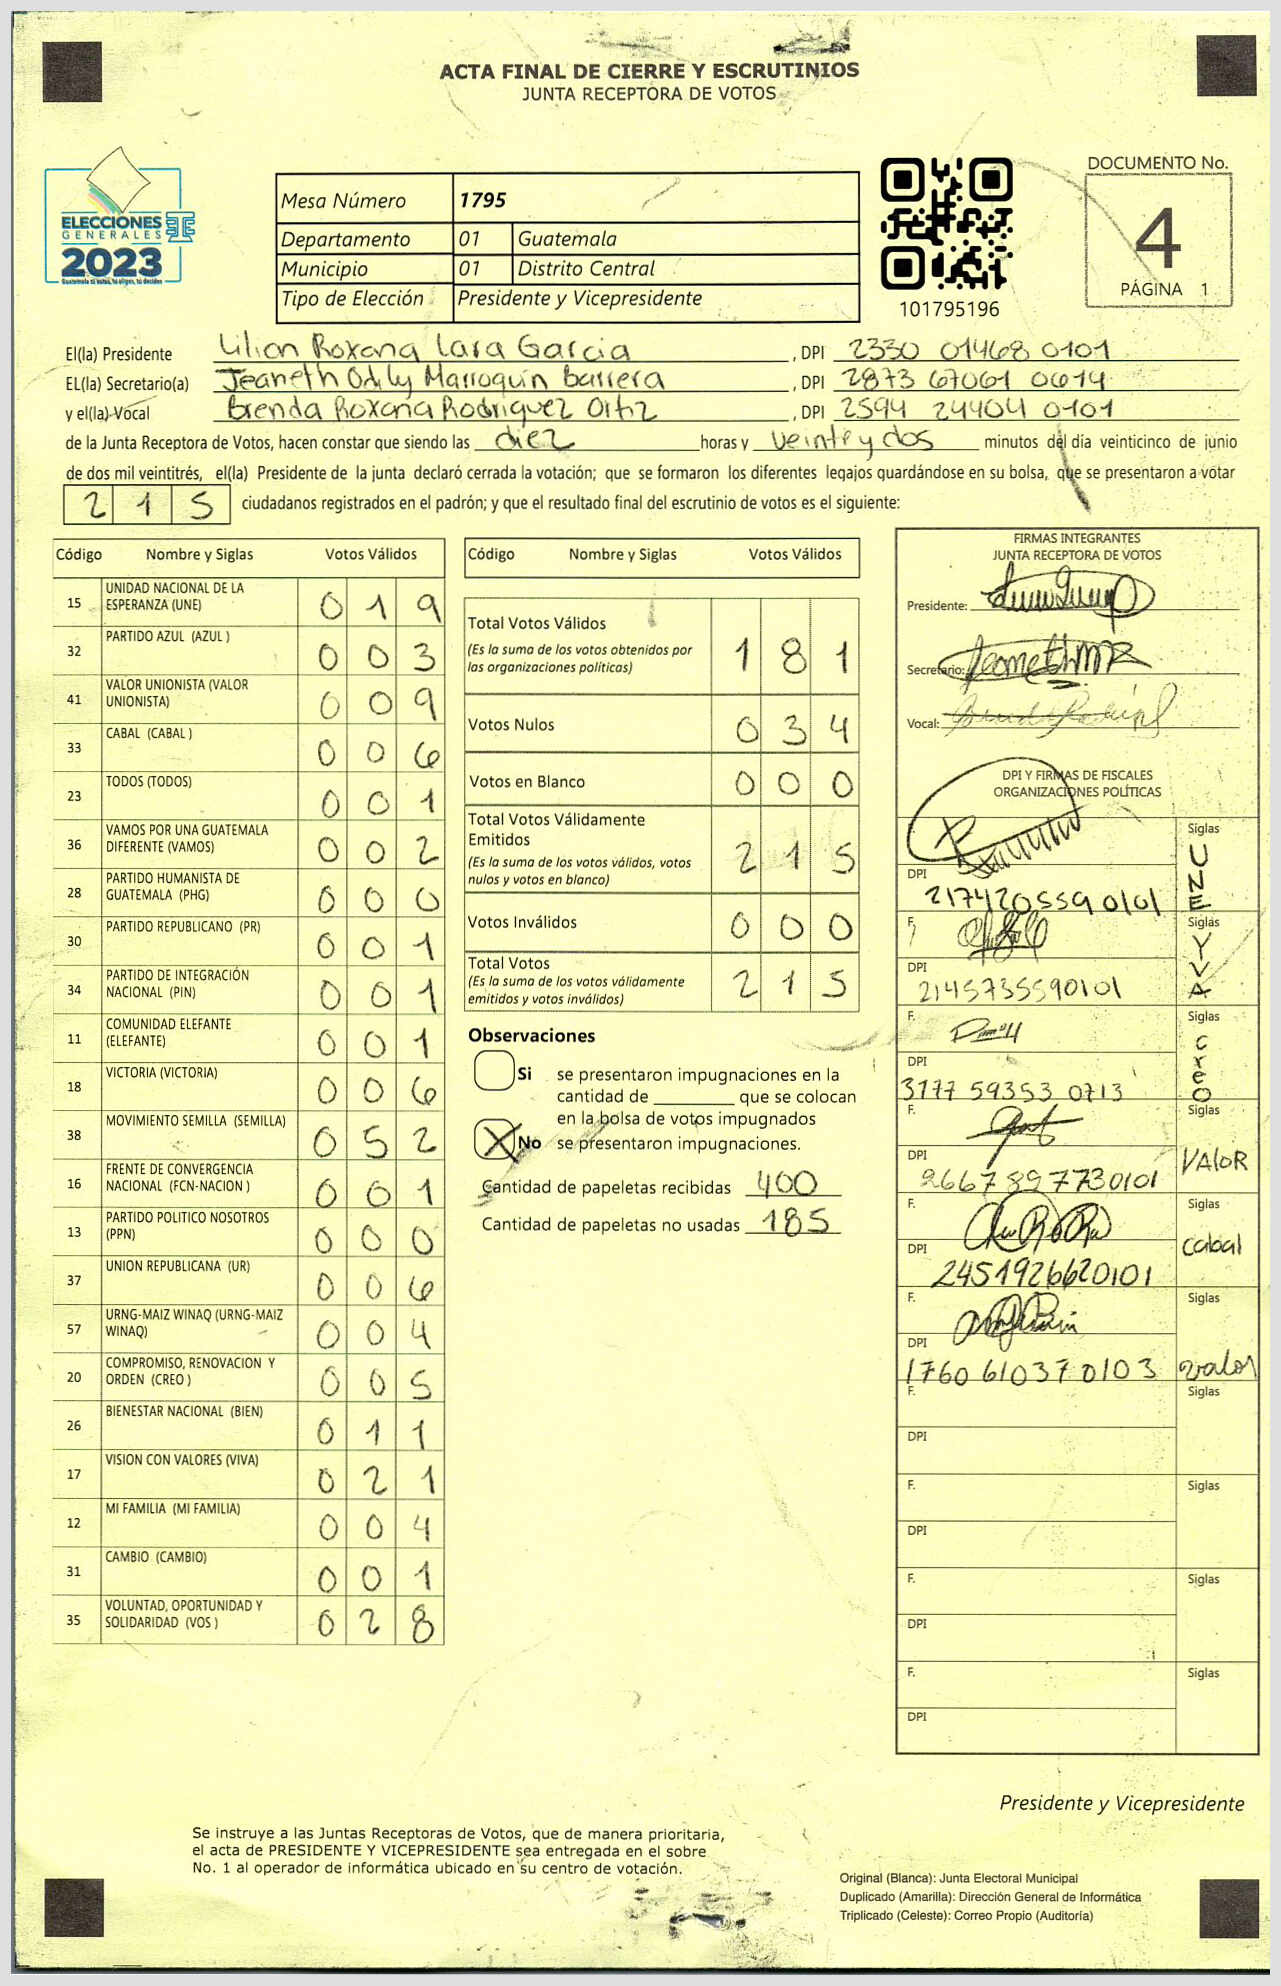 ACTA FINAL DE CIERRE Y ESCRUTINIOS
JUNTA RECEPTORA DE VOTOS
ELECCIONES
GENERALES
2023
Mesa Número 1795
Departamento 01 Guatemala
Municipio 01 Distrito Central
Tipo de Elección Presidente y Vicepresidente
101795196
DOCUMENTO No.
4
PÁGINA 1
El(la) Presidente Lilian Roxana Lara Garcia , DPI 2330 01468 0101
EL(la) Secretario(a) Jeaneth Odily Marroquin Barrera , DPI 2873 67061 0614
y el(la) Vocal Brenda Roxana Rodriquez Ortiz , DPI 2594 24404 0101
de la Junta Receptora de Votos, hacen constar que siendo las diez horas y veinte y dos minutos del día veinticinco de junio
de dos mil veintitrés, el(la) Presidente de la junta declaró cerrada la votación; que se formaron los diferentes legajos quardándose en su bolsa, que se presentaron a votar
215 ciudadanos registrados en el padrón; y que el resultado final del escrutinio de votos es el siguiente:
Código Nombre y Siglas Votos Válidos
15 UNIDAD NACIONAL DE LA ESPERANZA (UNE) 0 1 9
32 PARTIDO AZUL (AZUL ) 0 0 3
41 VALOR UNIONISTA (VALOR UNIONISTA) 0 0 9
33 CABAL (CABAL ) 0 0 6
23 TODOS (TODOS) 0 0 1
36 VAMOS POR UNA GUATEMALA DIFERENTE (VAMOS) 0 0 2
28 PARTIDO HUMANISTA DE GUATEMALA (PHG) 0 0 0
30 PARTIDO REPUBLICANO (PR) 0 0 1
34 PARTIDO DE INTEGRACIÓN NACIONAL (PIN) 0 0 1
11 COMUNIDAD ELEFANTE (ELEFANTE) 0 0 1
18 VICTORIA (VICTORIA) 0 0 6
38 MOVIMIENTO SEMILLA (SEMILLA) 0 5 2
16 FRENTE DE CONVERGENCIA NACIONAL (FCN-NACION ) 0 0 1
13 PARTIDO POLITICO NOSOTROS (PPN) 0 0 0
37 UNION REPUBLICANA (UR) 0 0 6
57 URNG-MAIZ WINAQ (URNG-MAIZ WINAQ) 0 0 4
20 COMPROMISO, RENOVACION Y ORDEN (CREO ) 0 0 5
26 BIENESTAR NACIONAL (BIEN) 0 1 1
17 VISION CON VALORES (VIVA) 0 2 1
12 MI FAMILIA (MI FAMILIA) 0 0 4
31 CAMBIO (CAMBIO) 0 0 1
35 VOLUNTAD, OPORTUNIDAD Y SOLIDARIDAD (VOS ) 0 2 8
Código Nombre y Siglas Votos Válidos
Total Votos Válidos 1 8 1
(Es la suma de los votos obtenidos por
las organizaciones políticas)
Votos Nulos 0 3 4
Votos en Blanco 0 0 0
Total Votos Válidamente
Emitidos 2 1 5
(Es la suma de los votos válidos, votos
nulos y votos en blanco)
Votos Inválidos 0 0 0
Total Votos 2 1 5
(Es la suma de los votos válidamente
emitidos y votos inválidos)
Observaciones
Si se presentaron impugnaciones en la
cantidad de ________ que se colocan
en la bolsa de votos impugnados
X No se presentaron impugnaciones.
Cantidad de papeletas recibidas 400
Cantidad de papeletas no usadas 185
FIRMAS INTEGRANTES
JUNTA RECEPTORA DE VOTOS
Presidente:
Secretario:
Vocal:
DPI Y FIRMAS DE FISCALES
ORGANIZACIONES POLÍTICAS
Siglas UNE
DPI 2174205590101
F. Siglas VIVA
DPI 2145735590101
F. Siglas creo
DPI 3177 59353 0713
F. Siglas VALOR
DPI 2667897730101
F. Siglas cabal
DPI 2451926620101
F. Siglas valor
DPI 1760 61037 0103
F. Siglas
DPI
F. Siglas
DPI
F. Siglas
DPI
F. Siglas
DPI
Presidente y Vicepresidente
Se instruye a las Juntas Receptoras de Votos, que de manera prioritaria,
el acta de PRESIDENTE Y VICEPRESIDENTE sea entregada en el sobre
No. 1 al operador de informática ubicado en su centro de votación.
Original (Blanca): Junta Electoral Municipal
Duplicado (Amarilla): Dirección General de Informática
Triplicado (Celeste): Correo Propio (Auditoría)